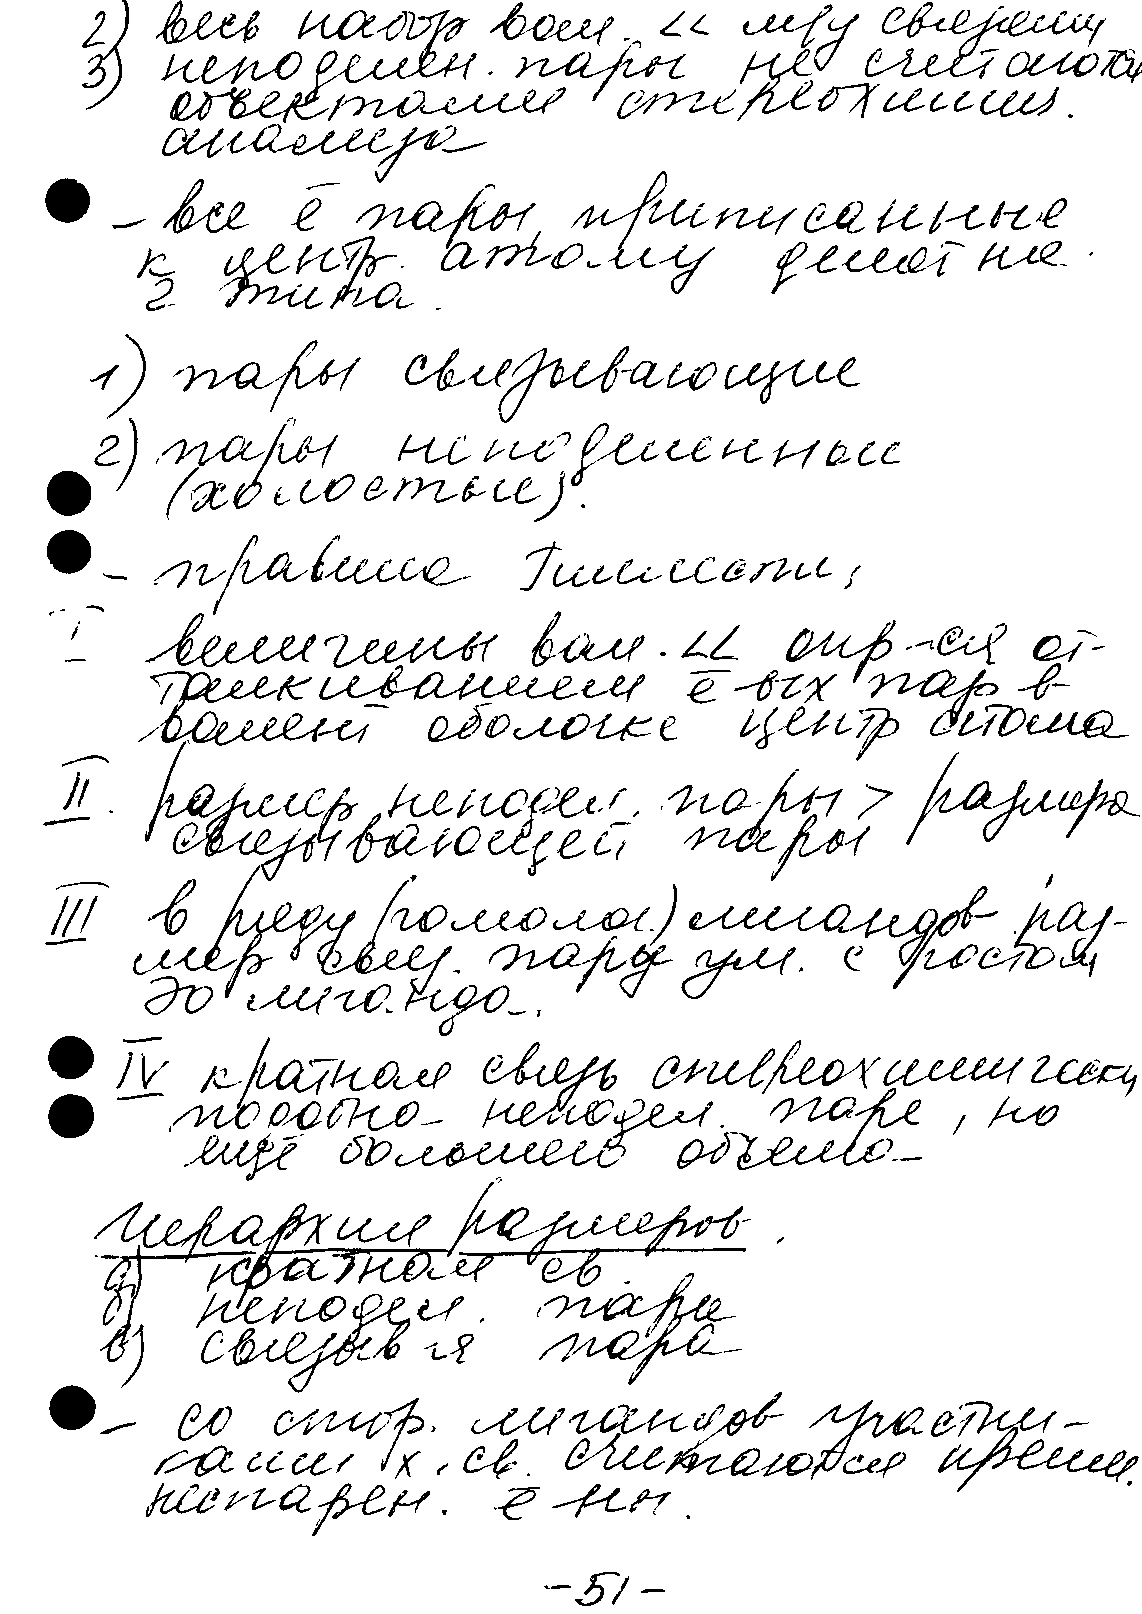 2) весь набор вал. << м/у связями
3) неподелен. пары не считаются
объектами стереохимич.
анализа
- все ē пары, приписанные
к центр. атому делят на
2 типа.
1) пары связывающие
2) пары неподеленные
(холостые).
- правила Гиллеспи;
I величины вал. << опр-ся от-
талкиванием ē-ых пар в
валент оболочке центр атома
II. размер неподел. пары > размера
связывающей пары
III в ряду (гомолог.) лигандов раз-
мер связ. пары ум. с ростом
ЭО лиганда.
IV кратная связь стереохимически
подобна неподел. паре, но
ещё большего объема
Иерархия размеров.
а) кратная св.
б) неподел. пара
в) связыв-я пара
- со стор. лигандов участни-
ками х. св. считаются
неспарен. ē-ны.
-51-